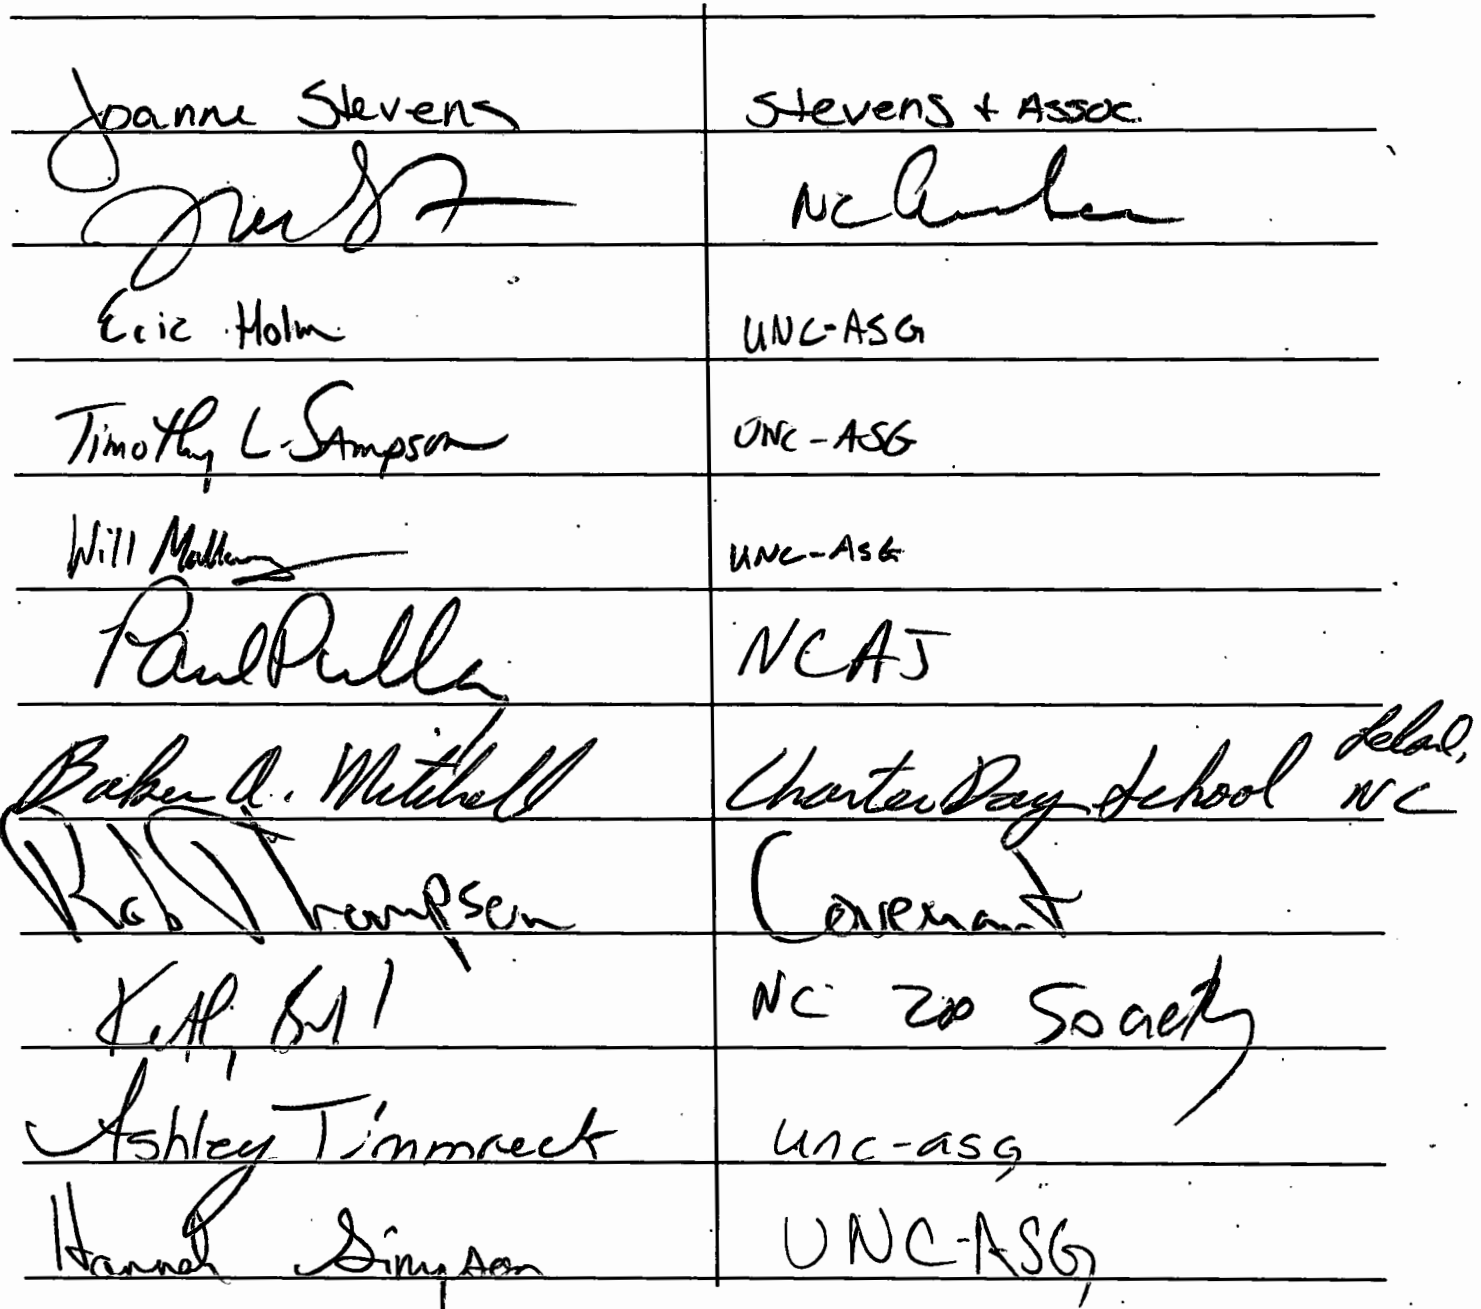 Joanne Stevens Stevens + Assoc.
NC Chamber
Eric Holm UNC-ASG
Timothy L. Sampson UNC-ASG
Will UNC-ASG
Paul NCAJ
Baker A. Mitchell Charter Day School Leland, NC
Rob Thompson Covenant
NC Zoo Society
Ashley Timmreck unc-asg
Hannah Simpson UNC-ASG